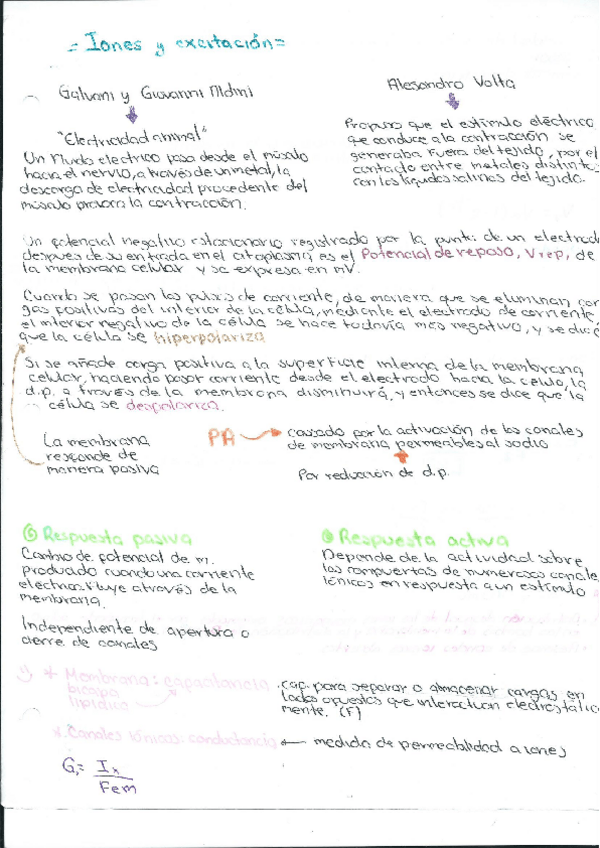 = Iones y excitación =
Galvani y Giovanni Aldini
"Electricidad animal"
Un fluido electrico pasa desde el músculo
hacia el nervio, a través de un metal, la
descarga de electricidad procedente del
músculo provoca la contracción.
Alesandro Volta
Propuso que el estímulo eléctrico
que conduce a la contracción se
generaba fuera del tejido, por el
contacto entre metales distintos
con los líquidos salinos del tejido.
Un potencial negativo estacionario registrado por la punta de un electrodo
despues de su entrada en el citoplasma es el Potencial de reposo, Vrep, de
la membrana celular y se expresa en mV.
Cuando se pasan los pulsos de corriente, de manera que se eliminan car
gas positivas del interior de la célula, mediante el electrodo de corriente,
el interior negativo de la célula se hace todavía mas negativo, y se dice
que la célula se hiperpolariza
Si se añade carga positiva a la superficie interna de la membrana
celular, haciendo pasar corriente desde el electrodo hacia la celula, la
d.p. a través de la membrana disminuirá, y entonces se dice que la
célula se despolariza.
La membrana
responde de
manera pasiva
PA
causado por la activación de los canales
de membrana permeables al sodio
Por reducción de d.p.
Respuesta pasiva
Cambio de potencial de m.
producido cuando una corriente
electrica fluye através de la
membrana.
Independiente de apertura o
cierre de canales
Respuesta activa
Depende de la actividad sobre
las compuertas de numerosos canales
iónicos en respuesta a un estímulo
* Membrana: capacitancia
bicapa
lipídica
cap. para separar o almacenar cargas en
lados opuestos que interactuan electrostática
mente. (F)
* Canales iónicos: conductancia ← medida de permeabilidad a iones
G = Ix
Fem